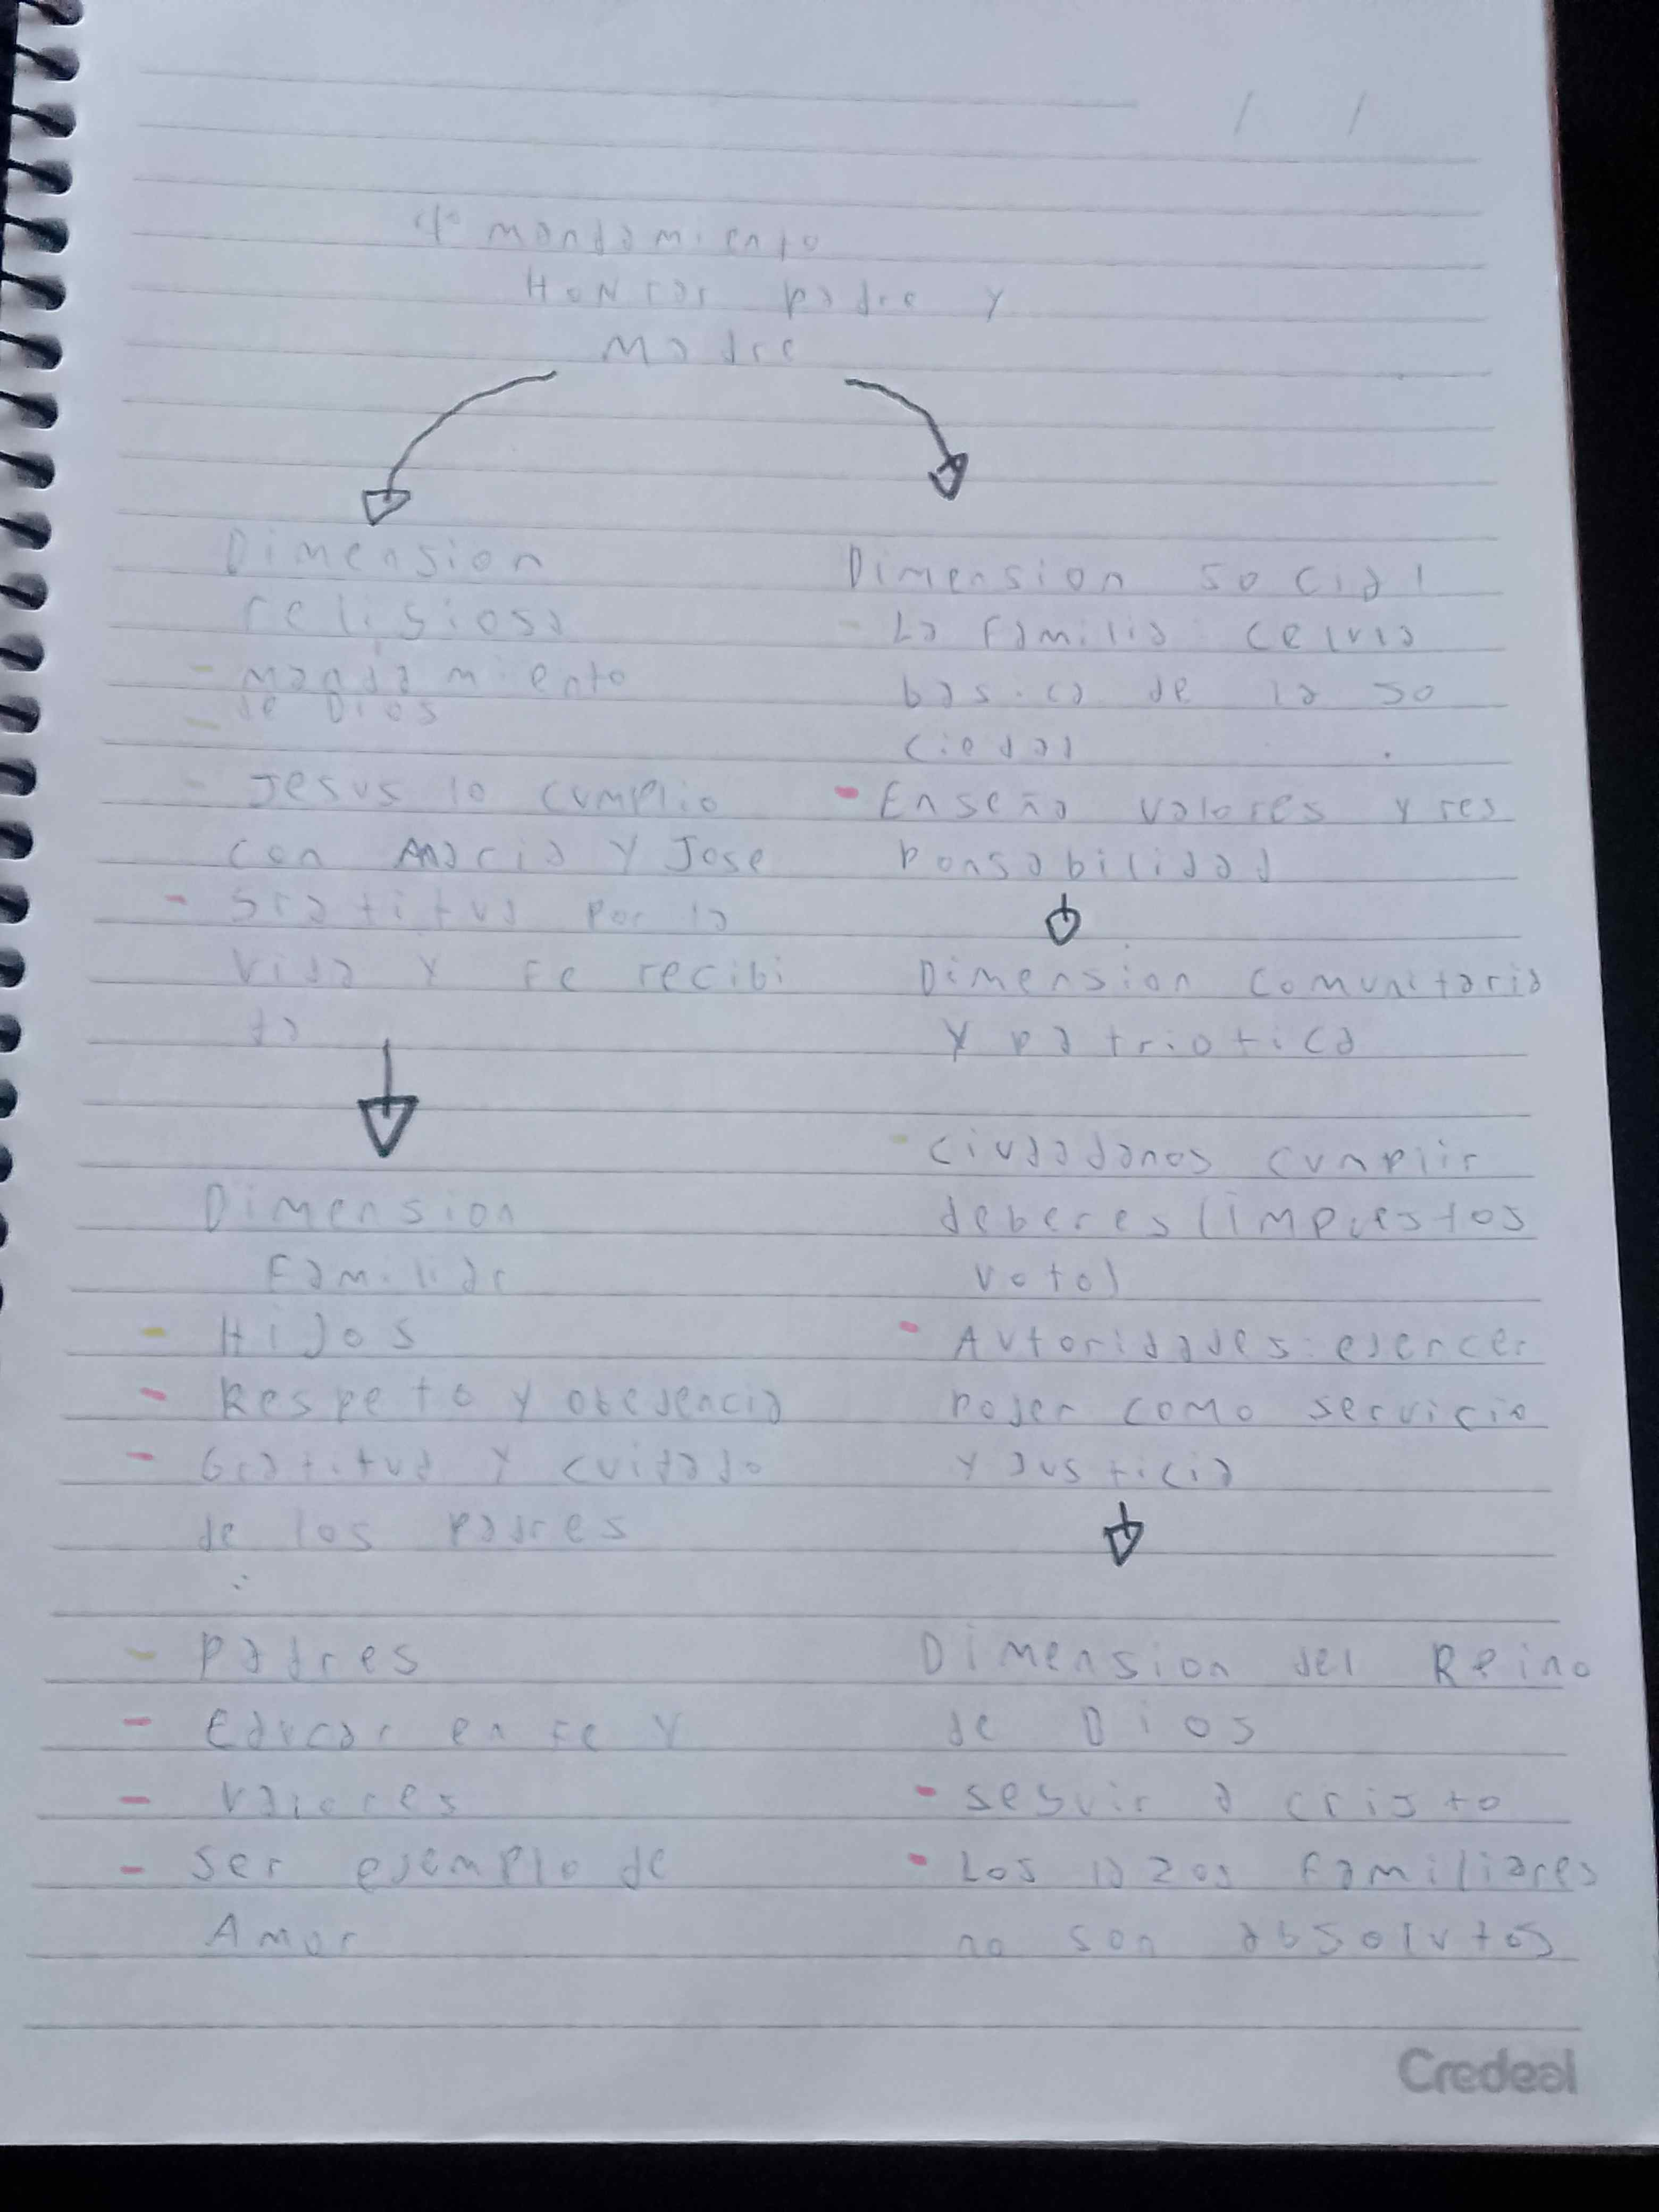 4° mandamiento
Honrar padre y
Madre
Dimension
religiosa
- mandamiento
de Dios
- Jesus lo cumplio
con Maria y Jose
- gratitud por la
vida y fe recibi
da
Dimension
Familiar
- Hijos
- Respeto y obedencia
- Gratitud y cuidado
de los padres
- padres
- educar en fe y
- valores
- ser ejemplo de
Amor
Dimension social
- La familia: celula
basica de la so
ciedad
- Enseña valores y res
ponsabilidad
Dimension comunitaria
y patriotica
- ciudadanos cumplir
deberes (impuestos
voto)
- Autoridades: ejercer
poder como servicio
y justicia
Dimension del Reino
de Dios
- seguir a cristo
- Los lazos familiares
no son absolutos
Credeal